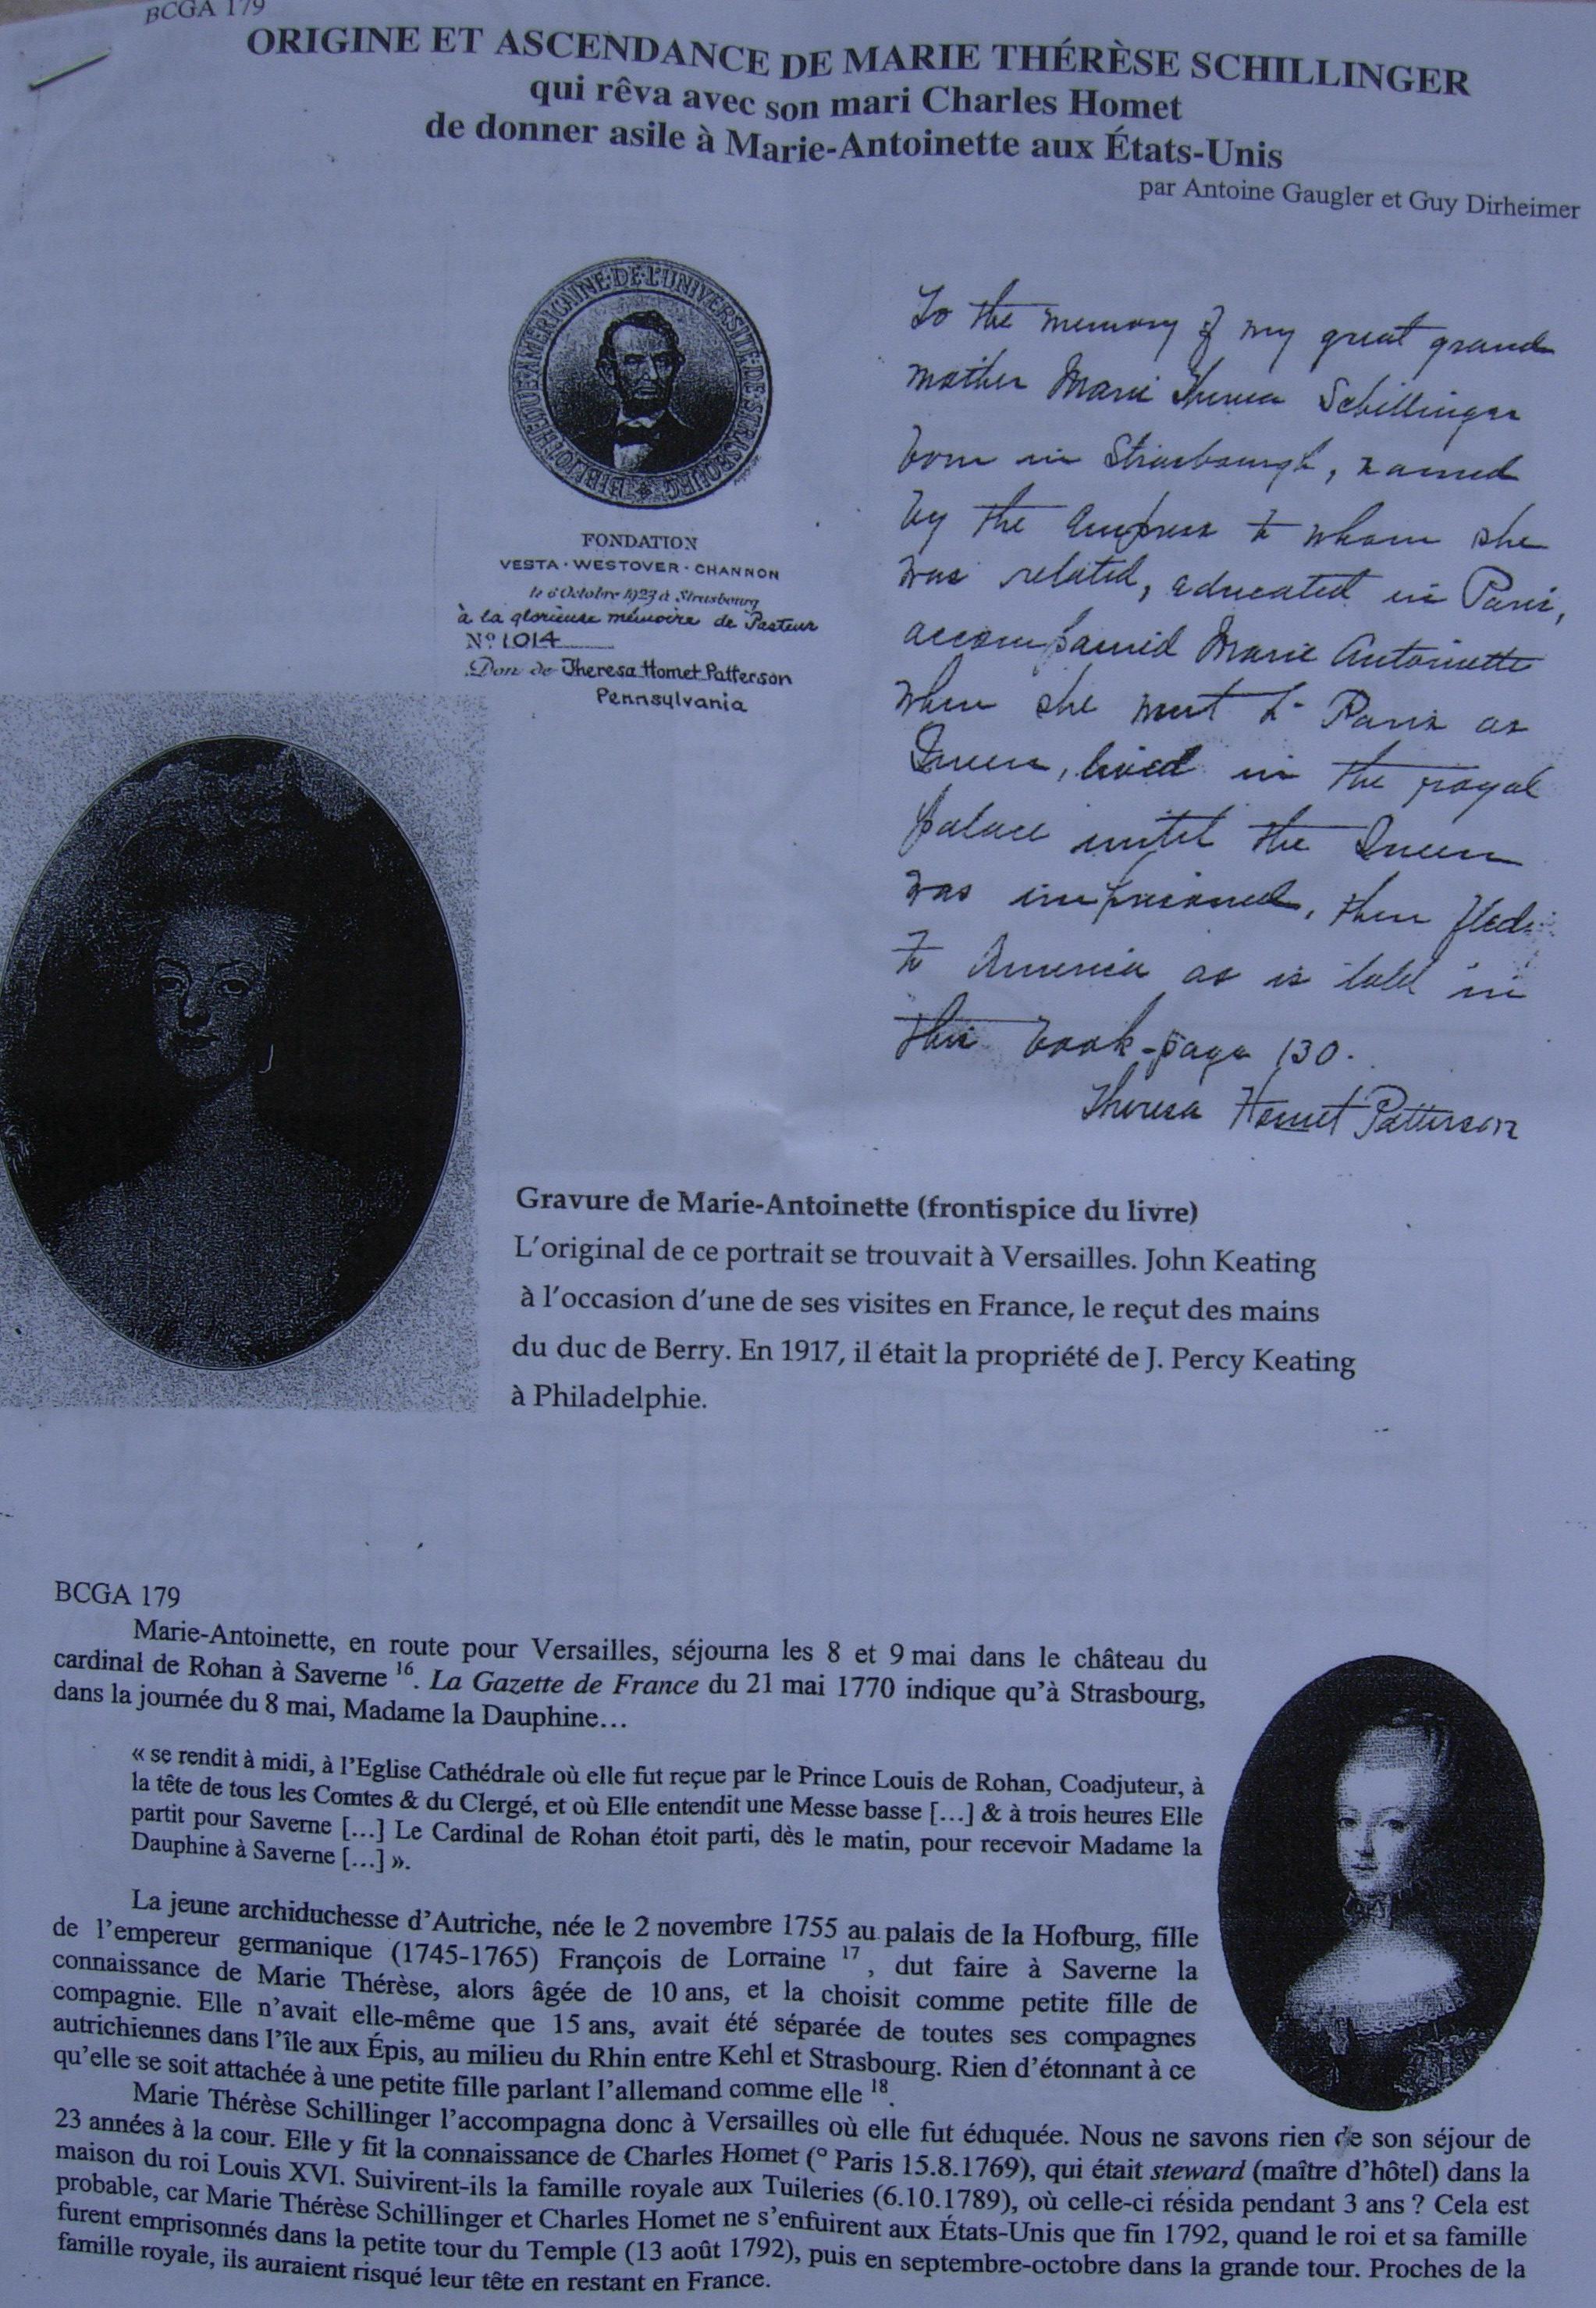 BCGA 179
ORIGINE ET ASCENDANCE DE MARIE THÉRÈSE SCHILLINGER
qui rêva avec son mari Charles Homet
de donner asile à Marie-Antoinette aux États-Unis
par Antoine Gaugler et Guy Dirheimer
BIBLIOTHEQUE·AMERICAINE·DE·L'UNIVERSITE·DE·STRASBOURG
FONDATION
VESTA·WESTOVER·CHANNON
le 6 Octobre 1923 à Strasbourg
à la glorieuse mémoire de Pasteur
Nº 1014
Don de Theresa Homet Patterson
Pennsylvania
To the memory of my great grand
mother Marie Theresa Schillinger
born in Strasbourgh, named
by the Empress to whom she
was related, educated in Paris,
accompanied Marie Antoinette
when she went to Paris as
Queen, lived in the royal
palace until the Queen
was imprisoned, then fled
to America as is told in
this book-page 130.
Theresa Homet Patterson
Gravure de Marie-Antoinette (frontispice du livre)
L'original de ce portrait se trouvait à Versailles. John Keating
à l'occasion d'une de ses visites en France, le reçut des mains
du duc de Berry. En 1917, il était la propriété de J. Percy Keating
à Philadelphie.
BCGA 179
Marie-Antoinette, en route pour Versailles, séjourna les 8 et 9 mai dans le château du
cardinal de Rohan à Saverne 16. La Gazette de France du 21 mai 1770 indique qu'à Strasbourg,
dans la journée du 8 mai, Madame la Dauphine…
« se rendit à midi, à l'Eglise Cathédrale où elle fut reçue par le Prince Louis de Rohan, Coadjuteur, à
la tête de tous les Comtes & du Clergé, et où Elle entendit une Messe basse […] & à trois heures Elle
partit pour Saverne […] Le Cardinal de Rohan étoit parti, dès le matin, pour recevoir Madame la
Dauphine à Saverne […] ».
La jeune archiduchesse d'Autriche, née le 2 novembre 1755 au palais de la Hofburg, fille
de l'empereur germanique (1745-1765) François de Lorraine 17, dut faire à Saverne la
connaissance de Marie Thérèse, alors âgée de 10 ans, et la choisit comme petite fille de
compagnie. Elle n'avait elle-même que 15 ans, avait été séparée de toutes ses compagnes
autrichiennes dans l'île aux Épis, au milieu du Rhin entre Kehl et Strasbourg. Rien d'étonnant à ce
qu'elle se soit attachée à une petite fille parlant l'allemand comme elle 18.
Marie Thérèse Schillinger l'accompagna donc à Versailles où elle fut éduquée. Nous ne savons rien de son séjour de
23 années à la cour. Elle y fit la connaissance de Charles Homet (° Paris 15.8.1769), qui était steward (maître d'hôtel) dans la
maison du roi Louis XVI. Suivirent-ils la famille royale aux Tuileries (6.10.1789), où celle-ci résida pendant 3 ans ? Cela est
probable, car Marie Thérèse Schillinger et Charles Homet ne s'enfuirent aux États-Unis que fin 1792, quand le roi et sa famille
furent emprisonnés dans la petite tour du Temple (13 août 1792), puis en septembre-octobre dans la grande tour. Proches de la
famille royale, ils auraient risqué leur tête en restant en France.